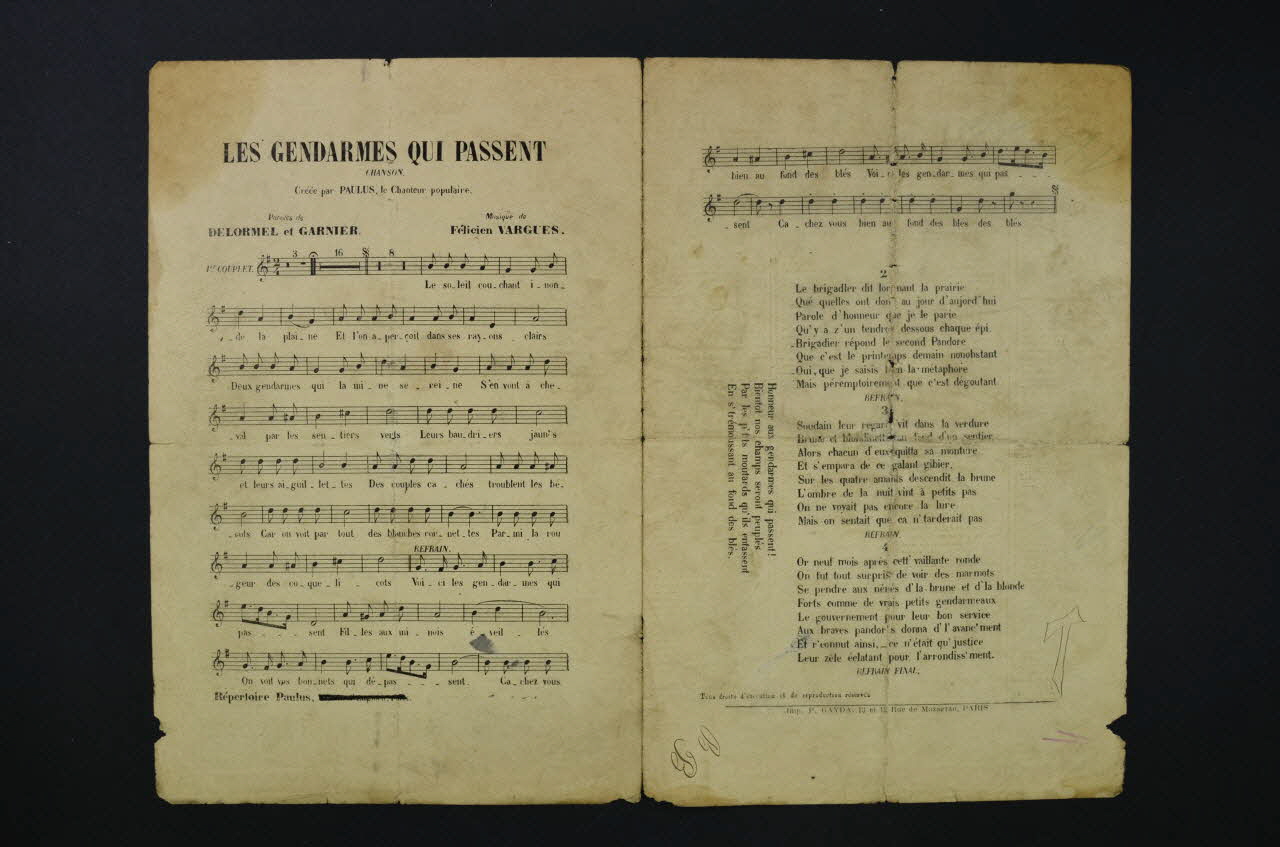 LES GENDARMES QUI PASSENT
CHANSON.
Créée par PAULUS, le Chanteur populaire.
Paroles de
DELORMEL et GARNIER.
Musique de
Félicien VARGUES.
1er COUPLET.
3 16 8
Le so_leil cou_chant i_non_
_de la plai_ne Et l'on a_per_çoit dans ses ray_ons clairs
Deux gendarmes qui la mi_ne se_rei_ne S'en vont à che_
_val par les sen_tiers verts Leurs bau_dri_ers jaun's
et leurs ai_guil_let_tes Des couples ca_chés troublent les bé_
_cots Car on voit par tout des blanches cor_net_tes Par_mi la rou
REFRAIN.
_geur des co_que_li_cots Voi_ci les gen_dar_mes qui
pas_ _sent Fil_les aux mi_nois é_veil_lés
On voit vos bon_nets qui dé_pas_ _sent Ca_chez vous
Répertoire Paulus,
bien au fond des blés Voi_ci les gen_dar_mes qui pas_
_sent Ca_chez vous bien au fond des blés des blés
2
Le brigadier dit lorgnant la prairie
Qué quelles ont don' au jour d'aujord'hui
Parole d'honneur que je le parie
Qu'y a z'un tendron dessous chaque épi.
_Brigadier répond le second Pandore
Que c'est le printemps demain nonobstant
_Oui, que je saisis bien la métaphore
Mais péremptoirement que c'est dégoutant
REFRAIN.
3
Soudain leur regard vit dans la verdure
Brune et blondinette au fond d'un sentier
Alors chacun d'eux quitta sa monture
Et s'empara de ce galant gibier,
Sur les quatre amants descendit la brune
L'ombre de la nuit vint à petits pas
On ne voyait pas encore la lune
Mais on sentait que ça n'tarderait pas
REFRAIN.
4
Or neuf mois après cett' vaillante ronde
On fut tout surpris de voir des marmots
Se pendre aux nénés d'la brune et d'la blonde
Forts comme de vrais petits gendarmeaux
Le gouvernement pour leur bon service
Aux braves pandor's donna d'l'avanc'ment
Et r'connut ainsi,_ce n'était qu'justice
Leur zèle éclatant pour l'arrondiss'ment.
REFRAIN FINAL.
Honneur aux gendarmes qui passent!
Bientôt nos champs seront peuplés
Par les p'tits moutards qu'ils entassent
En s'trémoussant au fond des blés.
Tous droits d'exécution et de reproduction réservés
Imp. P. GAYDA, 13 et 12 Rue de Mazagran, PARIS